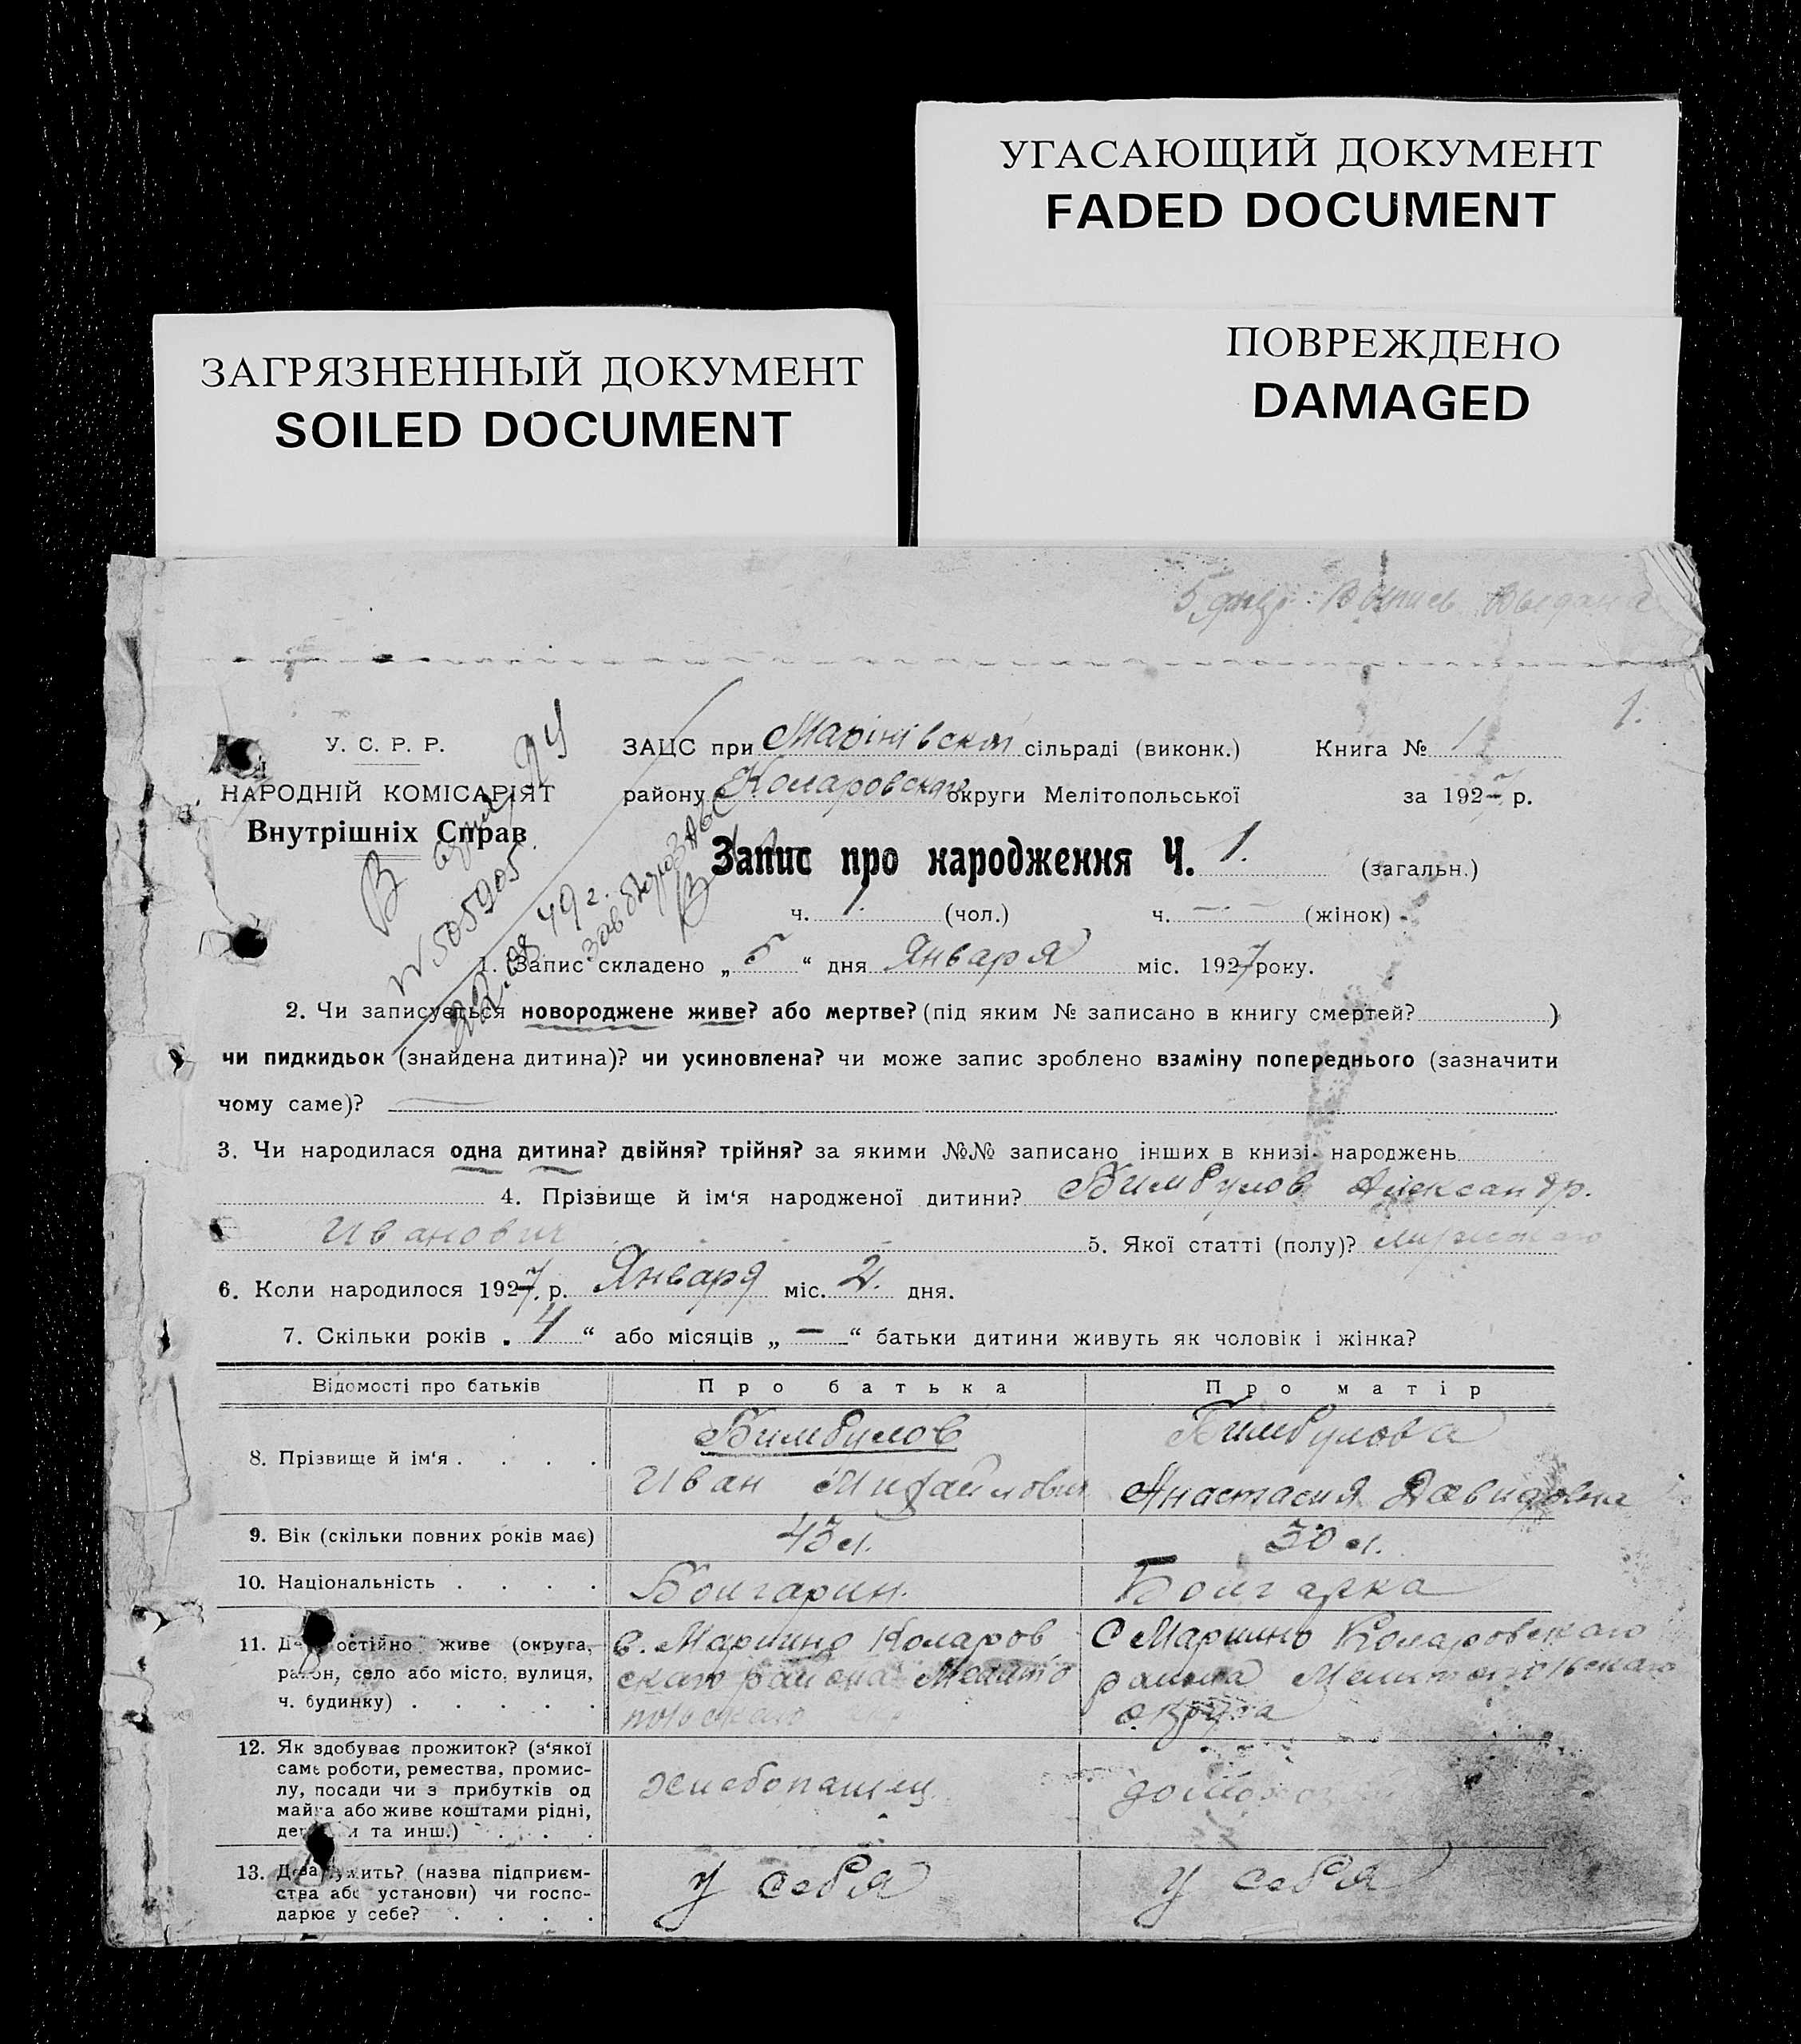 УГАСАЮЩИЙ ДОКУМЕНТ
FADED DOCUMENT
ЗАГРЯЗНЕННЫЙ ДОКУМЕНТ
SOILED DOCUMENT
ПОВРЕЖДЕНО
DAMAGED
Выпись выдана
1.
У. С. Р. Р.
НАРОДНІЙ КОМІСАРІЯТ
Внутрішніх Справ
№ 505905
49 г.
ЗАЦС при Марінівской сільраді (виконк.) Книга № 1
району Коларовского округи Мелітопольської за 1927 р.
Запис про народження Ч. 1. (загальн.)
ч. 1. (чол.) ч. — (жінок)
1. Запис складено „ 5 “ дня Января міс. 1927 року.
2. Чи записується новороджене живе? або мертве? (під яким № записано в книгу смертей? )
чи пидкидьок (знайдена дитина)? чи усиновлена? чи може запис зроблено взаміну попереднього (зазначити
чому саме)? —
3. Чи народилася одна дитина? двійня? трійня? за якими №№ записано інших в книзі народжень
4. Прізвище й ім‘я народженої дитини? Бимбулов Александр.
Иванович 5. Якої статті (полу)? мужского
6. Коли народилося 1927 р. Января міс. 2. дня.
7. Скільки років „ 4 “ або місяців „ — “ батьки дитини живуть як чоловік і жінка?
Відомості про батьків Про батька Про матір
8. Прізвище й ім‘я . . . . Бимбулов Бимбулова
Иван Михайлович Анастасия Давидовна
9. Вік (скільки повних років має) 43 л. 30 л.
10. Національність . . . . Болгарин. Болгарка
11. Де постійно живе (округа, с. Марино Коларов С Марино Коларовского
район, село або місто, вулиця, ского района Мелито района Мелитопольского
ч. будинку) . . . . . польского округа
12. Як здобуває прожиток? (з‘якої
саме роботи, ремества, промис-
лу, посади чи з прибутків од хлебопашец
майна або живе коштами рідні,
та инш.) . . . .
13. Де служить? (назва підприєм- у себя у себя
ства або установи) чи госпо-
дарює у себе? . . . .